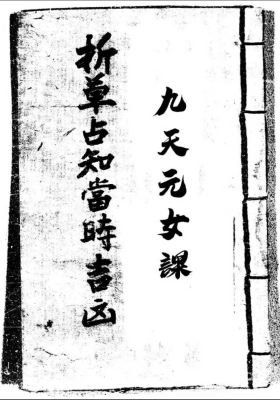 九天元女課
折草占知當時吉凶